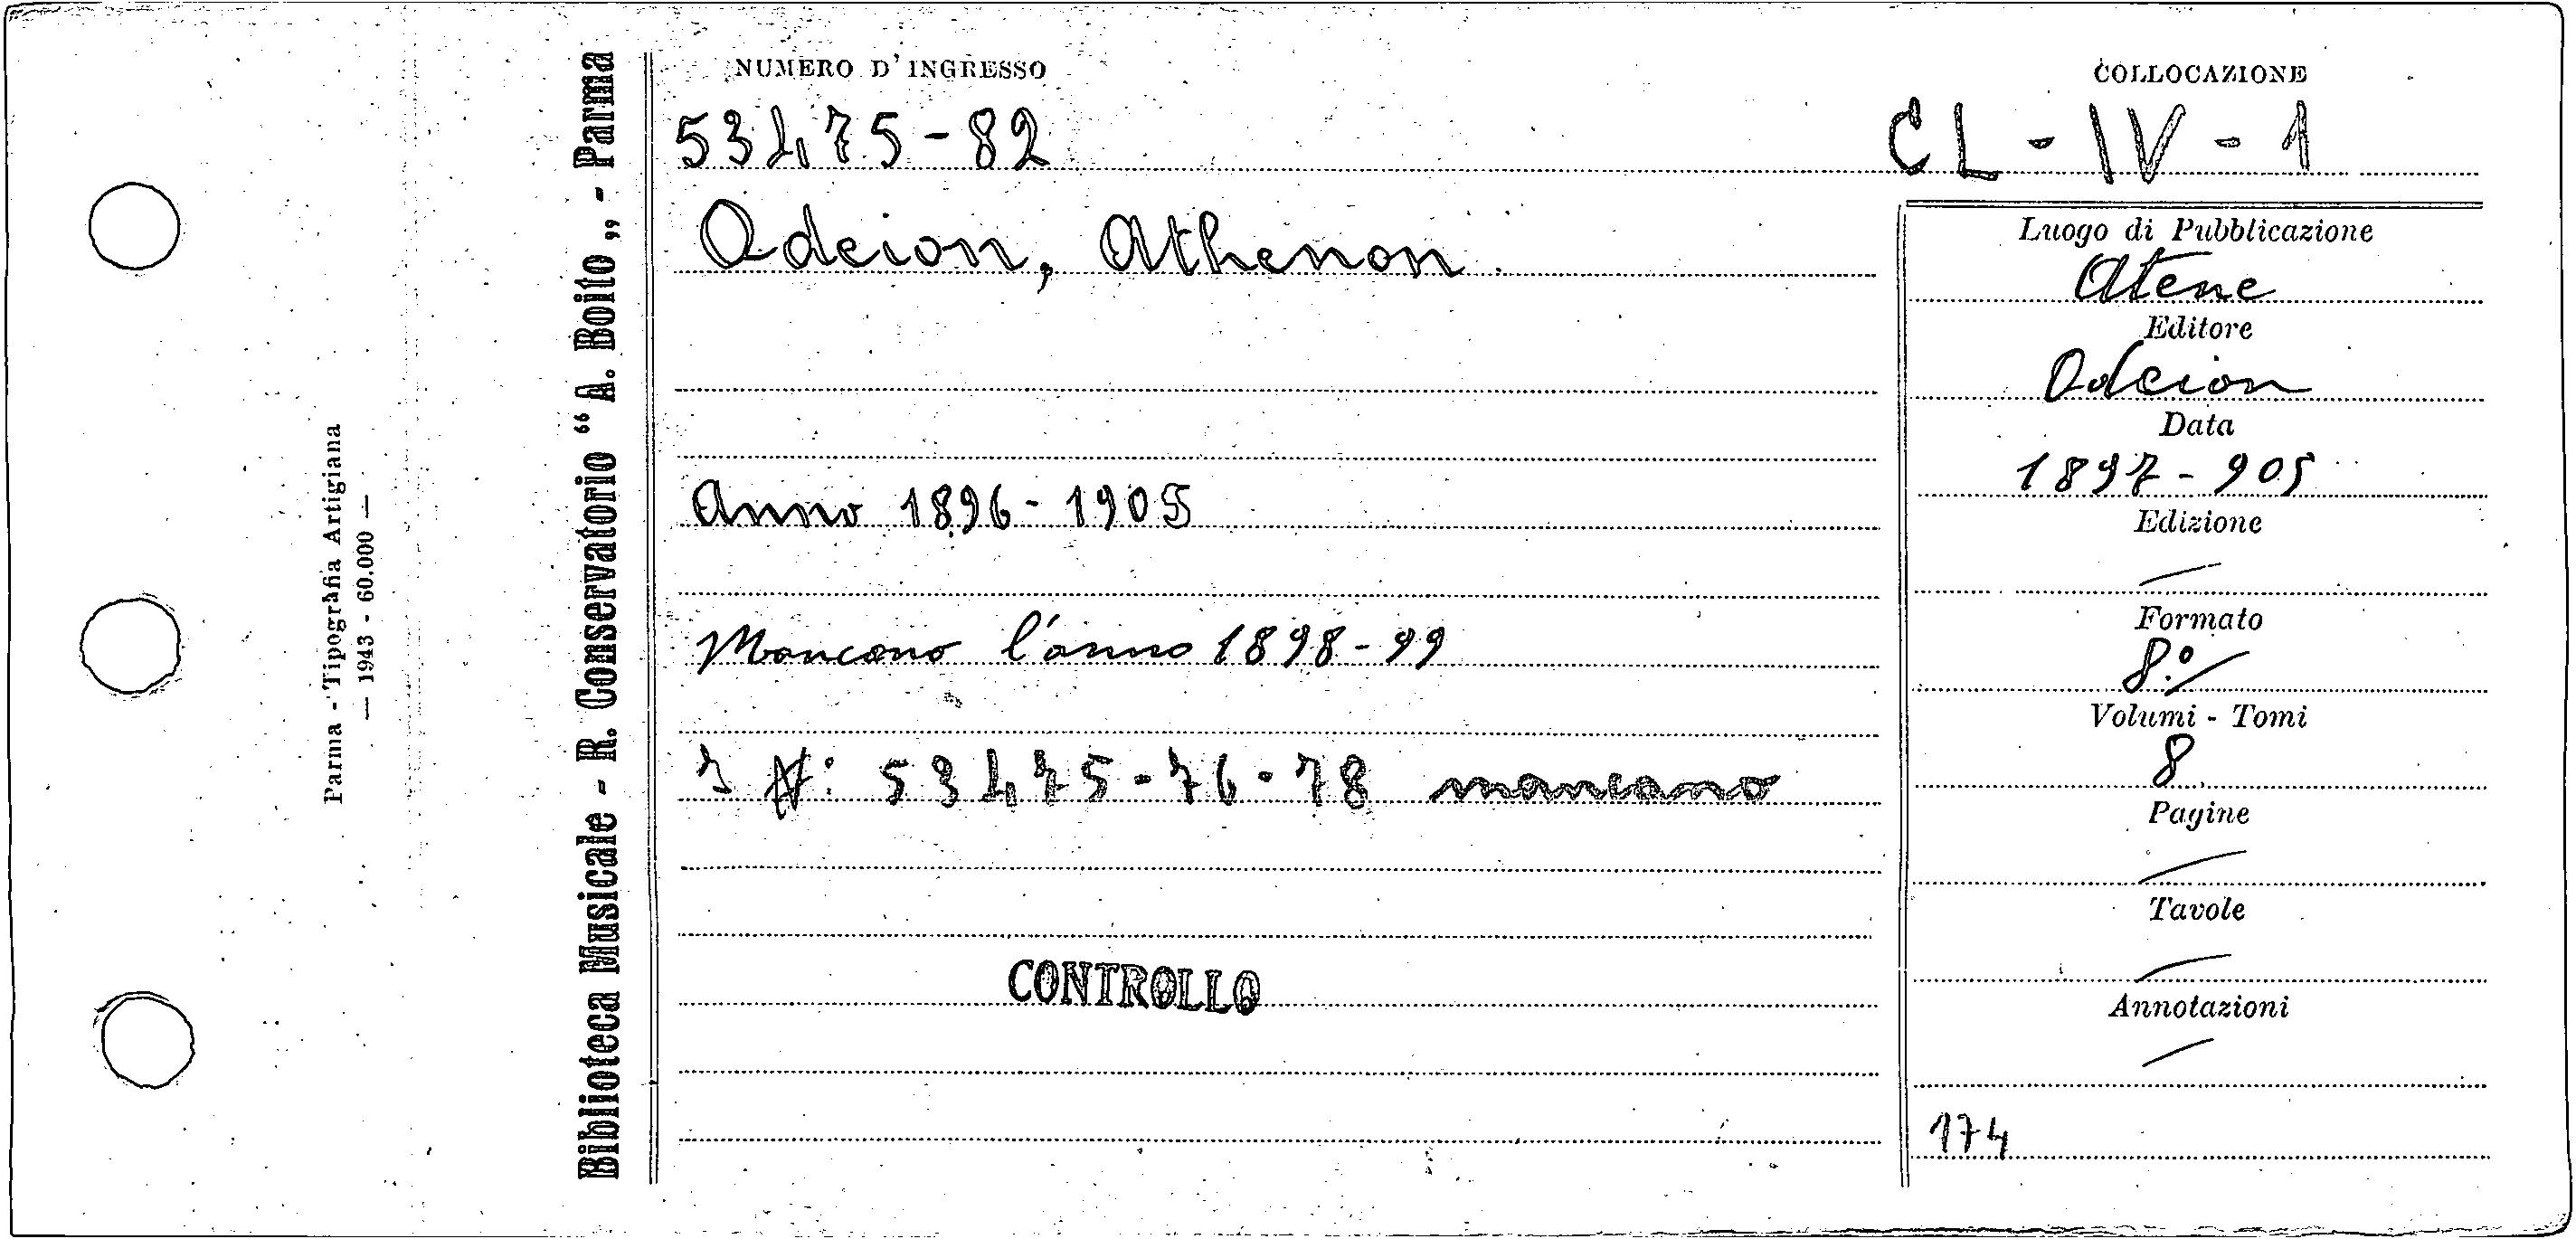 NUMERO D'INGRESSO
53475-82
COLLOCAZIONE
CL - IV - 1
Odeion, Athenon
Anno 1896 - 1905
Mancano l'anno 1898-99
I N: 53475-76-78 mancano
CONTROLLO
Luogo di Pubblicazione
Atene
Editore
Odeion
Data
1897 - 905
Edizione
Formato
8º
Volumi - Tomi
8
Pagine
Tavole
Annotazioni
174
Biblioteca Musicale - R. Conservatorio “A. Boito„ - Parma
Parma - Tipografia Artigiana
— 1943 - 60.000 —